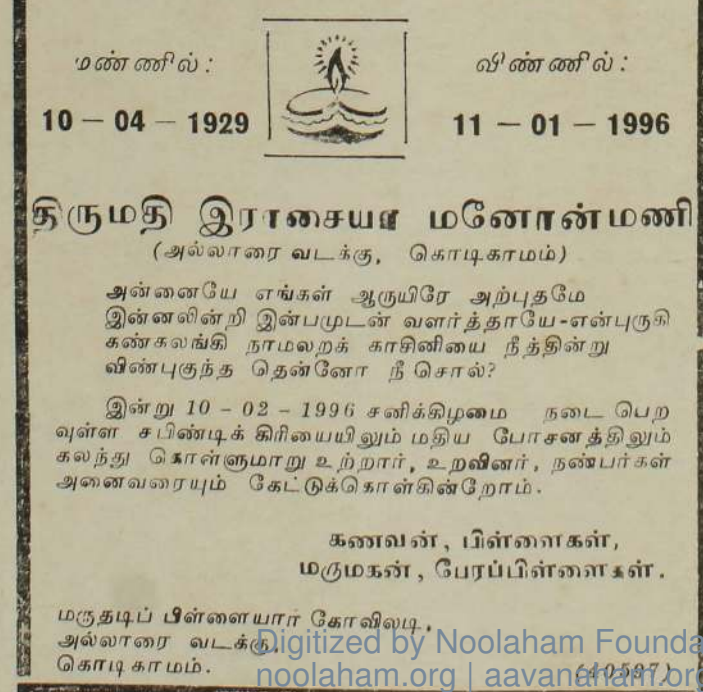 மண்ணில்: விண்ணில்:
10 – 04 – 1929 11 – 01 – 1996
திருமதி இராசையா மனோன்மணி
(அல்லாரை வடக்கு, கொடிகாமம்)
அன்னையே எங்கள் ஆருயிரே அற்புதமே
இன்னலின்றி இன்பமுடன் வளர்த்தாயே-என்புருகி
கண்கலங்கி நாமலறக் காசினியை நீத்தின்று
விண்புகுந்த தென்னோ நீ சொல்?
இன்று 10 – 02 – 1996 சனிக்கிழமை நடை பெற
வுள்ள சபிண்டிக் கிரியையிலும் மதிய போசனத்திலும்
கலந்து கொள்ளுமாறு உற்றார், உறவினர், நண்பர்கள்
அனைவரையும் கேட்டுக்கொள்கின்றோம்.
கணவன், பிள்ளைகள்,
மருமகன், பேரப்பிள்ளைகள்.
மருதடிப் பிள்ளையார் கோவிலடி,
அல்லாரை வடக்கு,
கொடிகாமம். (40597)
Digitized by Noolaham Founda
noolaham.org | aavanaham.org